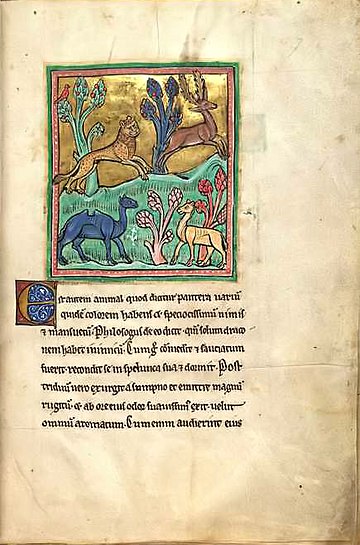 Est autem animal quod dicitur pantera varium
quidē colorem habens &̄ speciocissimū nimis
& mansuetū. Philosogus de eo dicit. qm̄ solum draco
nem habet inimicū. Cumq̄ comederit & saciatum
fuerit. recondit se in spelunca sua & dormit. Post
triduū vero exurgit a sompno et emittit magnū
rugitū. & ab ore eius odor suavissimus exit. velut
omniū aromatum. Cum enim audierint eius